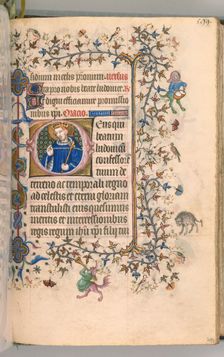 fidium in celis pronum. versus
Ora pro nobis beate ludovice. R
Ut digni efficiamur promissio
nibus xpi. Oracio.
Deus qui
beatum
ludovicu
confessore
tuum de
terreno ac temporali regno
ad celestis et eterni gloriam
transtulisti eius quesumus
meritis et intercessionibus
regis regum ihu xpi filij tui